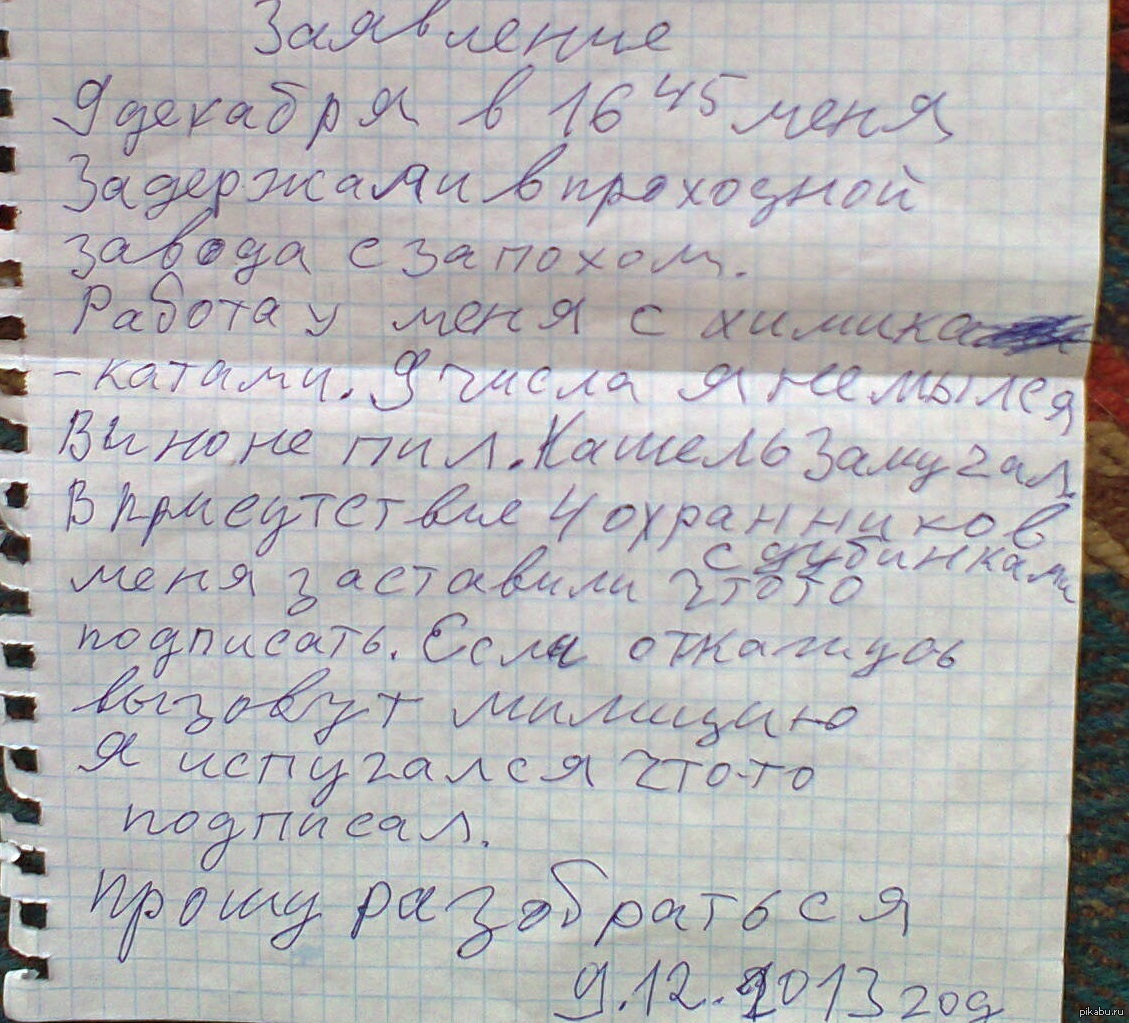 Заявление
9 декабря в 16 45 меня
Задержали в проходной
завода с запохом.
Работа у меня с химика
-катами. 9 числа я не мылся
Вино не пил. Кашель Замучал
В присутствие 4 охранников
с дубинками
меня заставили что то
подписать. Если откажусь
вызовут милицию
Я испугался что-то
подписал.
прошу разобраться
9.12.2013 год
pikabu.ru